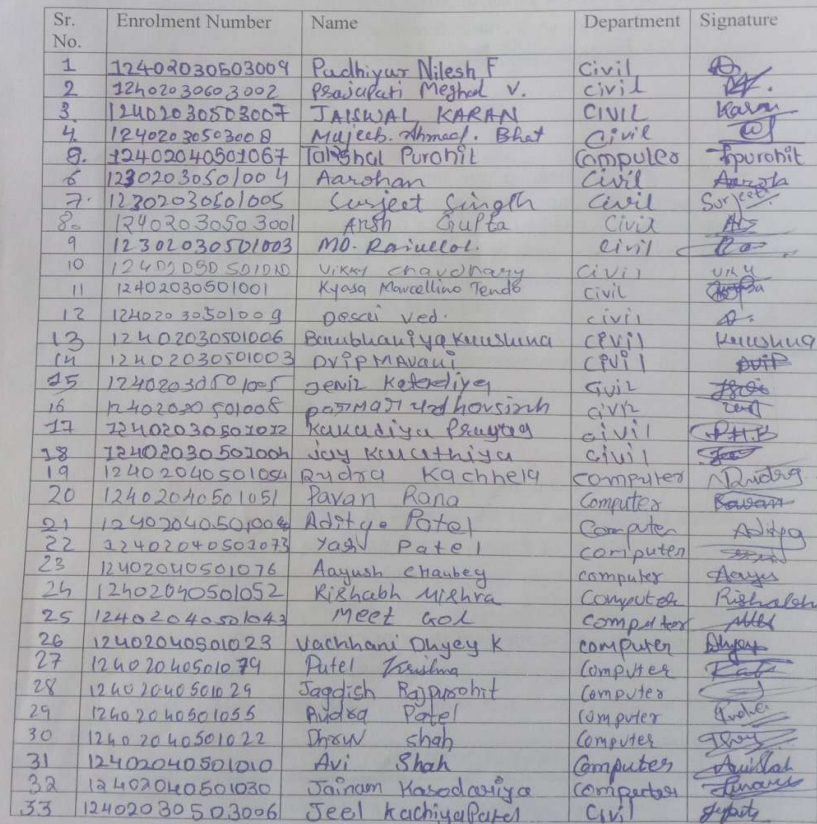 Sr. No. Enrolment Number Name Department Signature
1 12402030503009 Padhiyar Nilesh F Civil
2 12402030603002 Prajapati Meghal V. civil
3. 12402030503007 JAISWAL KARAN CIVIL Karan
4. 12402030503008 Mujeeb. Ahmad. Bhat Civil
5. 12402040501067 Purohit Computer Tpurohit
6 12302030501004 Aarohan Civil Aaroh
7. 12302030501005 Surjeet Singh Civil Surjeet
8. 12402030503001 Ansh Gupta Civil
9 12302030501003 MD. Civil
10 Vikky chaudhary Civil
11 12402030501001 Kyasa Marcellino Tendo Civil
12 12402030501009 Desai Ved. civil
13 12402030501006 Civil
14 12402030501003 DVIP MAvani Civil DviP
15 12402030501005 Jeniz Civil
16 civil
17 12402030501012 Kakadiya Prayag civil P.H.B
18 12402030501004 Jay civil
19 12402040501054 Rudra Kachhela computer Rudra
20 12402040501051 Pavan Rana Computer
21 Aditya Patel Computer Aditya
22 12402040501073 Yash Patel computer
23 12402040501076 Aayush Chaubey computer Aayu
24 12402040501052 Rishabh Mishra Computer Rishabh
25 12402040501043 Meet Gol computer
26 12402040501023 Vachhani Dhyey K computer Dhyey
27 12402040501079 Patel Computer
28 12402040501029 Jagdish Rajpurohit Computer
29 12402040501055 Rudra Patel Computer
30 12402040501022 Dhruv shah Computer
31 12402040501010 Avi Shah Computer Avi Shah
32 12402040501030 Jainam Kasodariya Computer
33 12402030503006 Jeel Kachiya Patel Civil